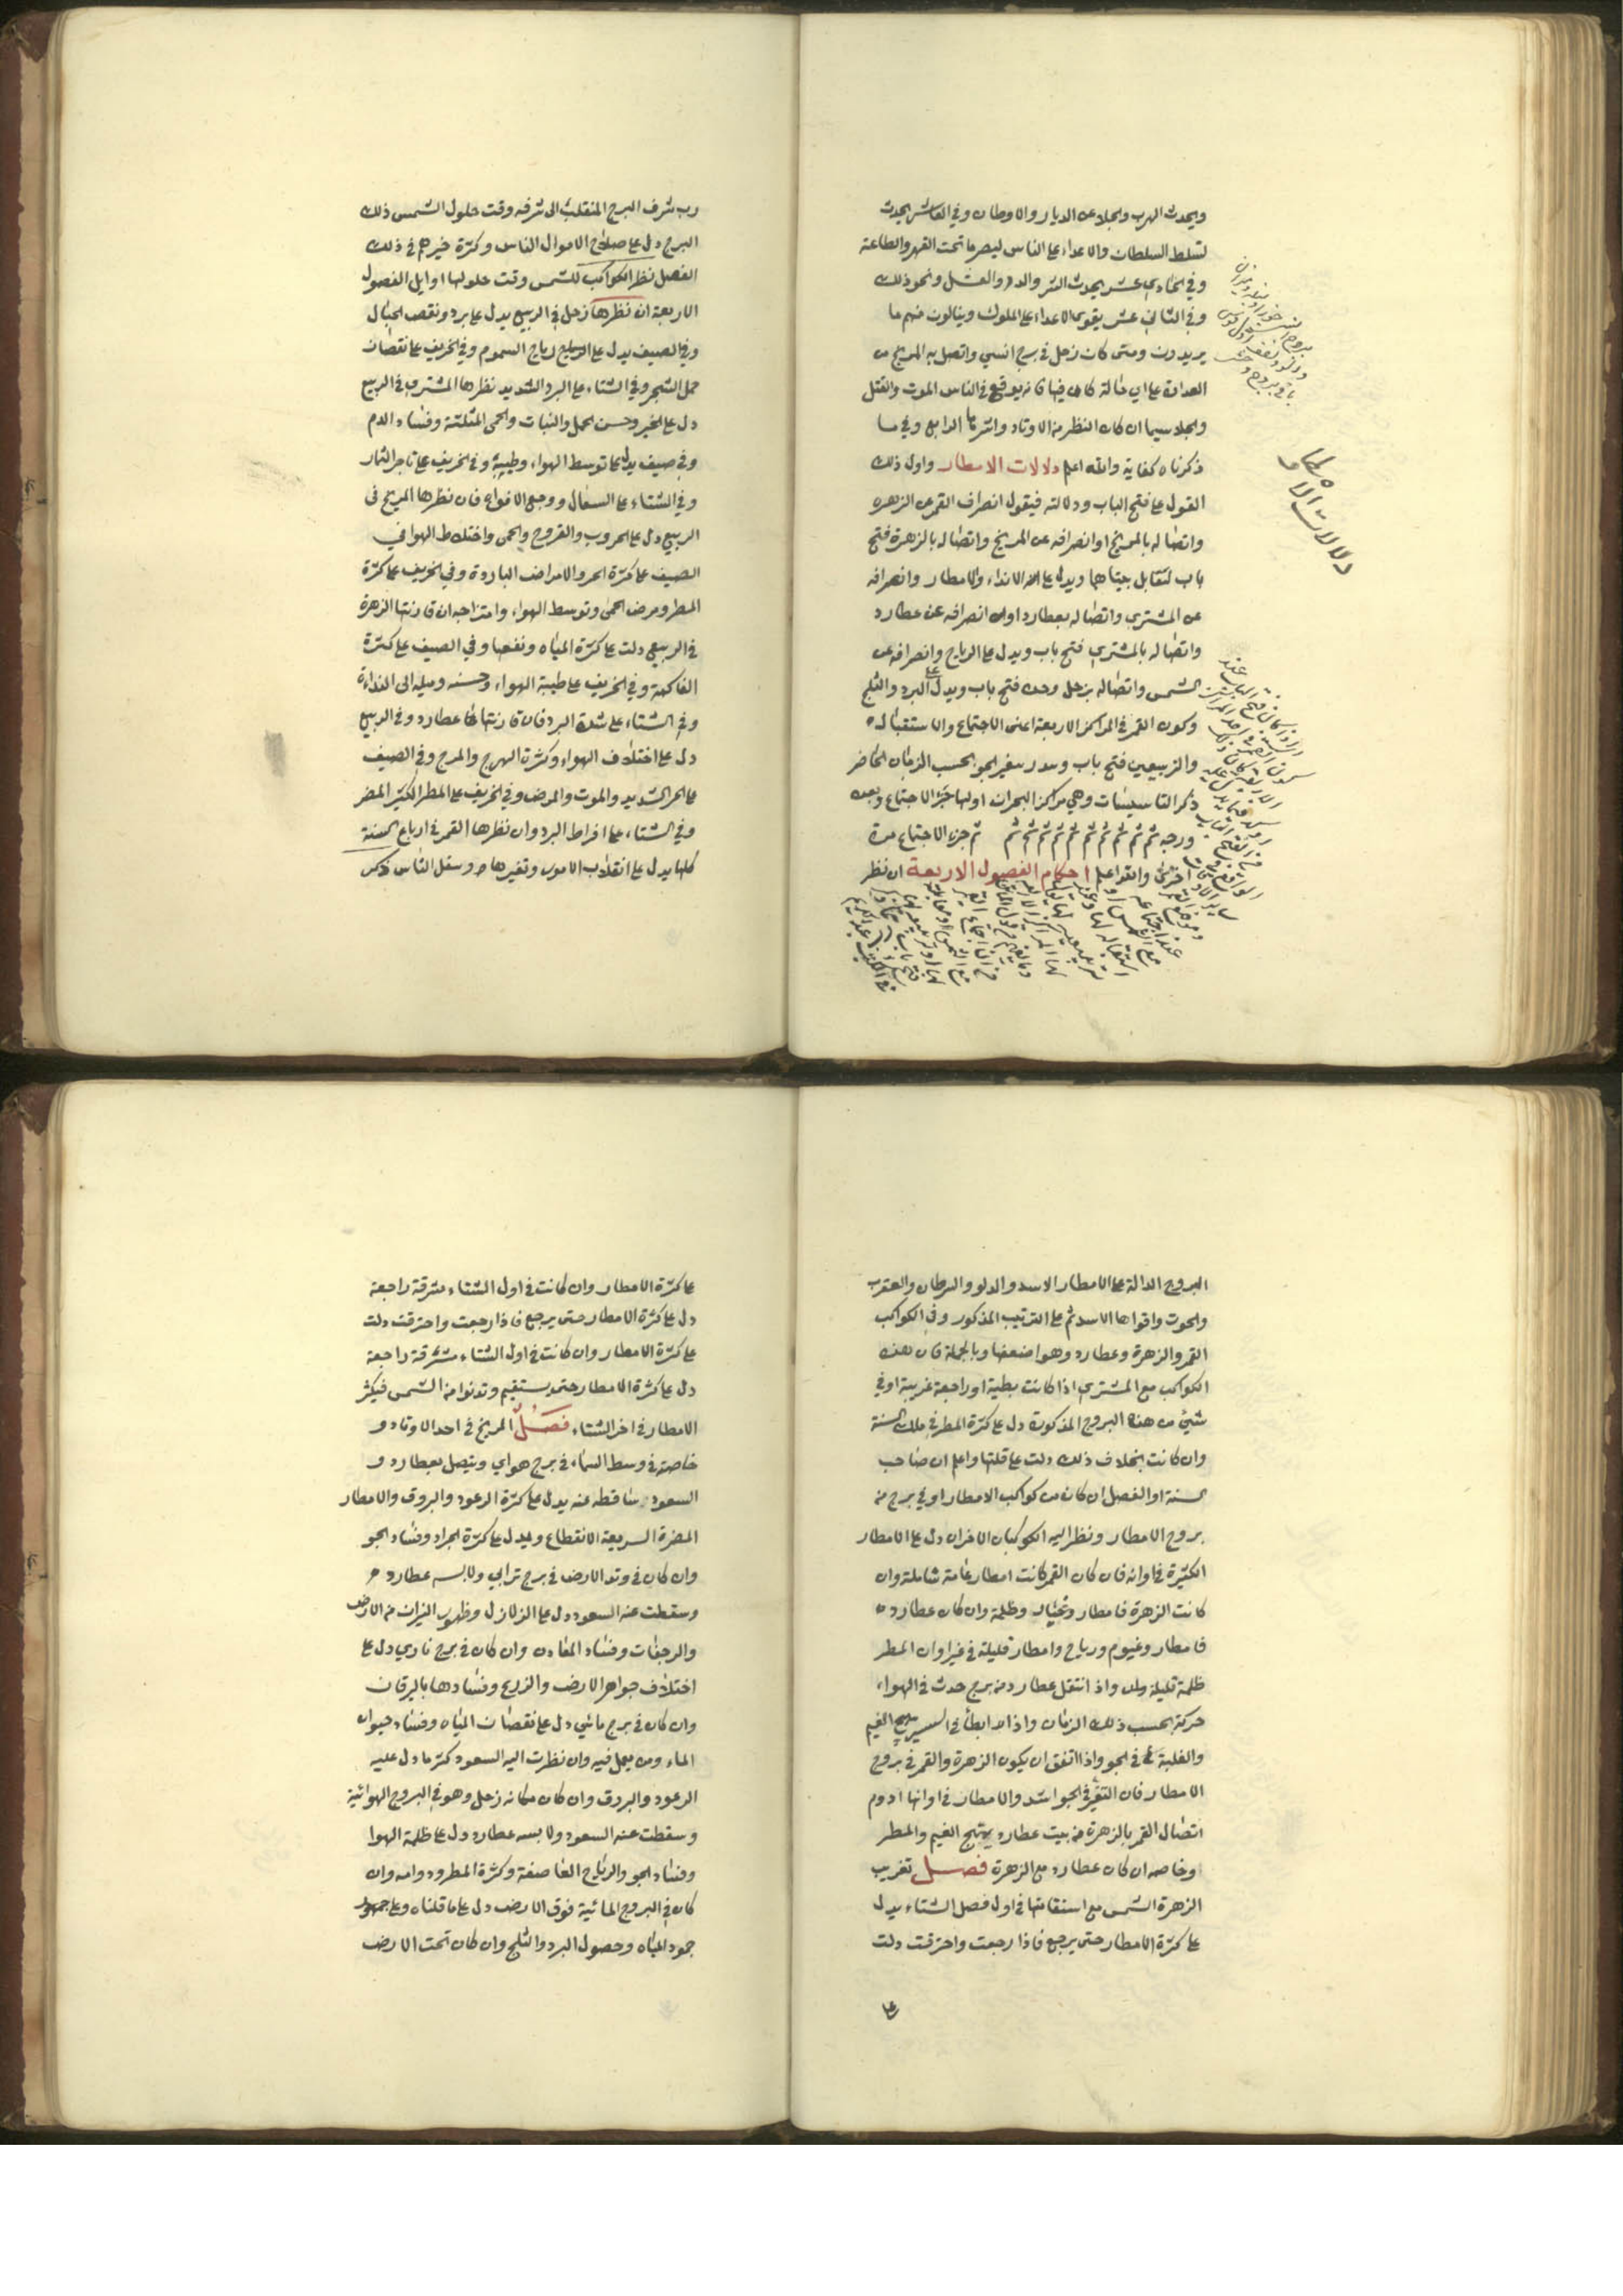 ويحدث الهرب والجلا عن الديار والاوطان وفي العاشر يحدث
تسلط السلطان والاعداء على الناس ليصرما تحت القهر والطاعة
وفي الحادي عشر يحدث الشر والدم والقتل ونحو ذلك
وفي الثاني عشر يقوي الاعداء على الملوك وينالون منهم ما
يريدون ومتى كان زحل في برج انسي واتصل به المريخ من
العداوة على اي حالة كان فيها فانه يوقع في الناس الموت والقتل
والجلا سيما ان كان النظر من الاوتاد واشرها الرابع وفي ما
ذكرناه كفاية والله اعلم دلالات الامطار واول ذلك
القول على فتح الباب ودلالته فيقول انصراف القمر عن الزهره
واتصاله بالمريخ او انصرافه عن المريخ واتصاله بالزهرة فتح
باب لتقابل بيتاهما ويدل على الانداء والامطار وانصرافه
عن المشتري واتصاله بعطارد او انصرافه عن عطارد
واتصاله بالمشتري فتح باب ويدل على الرياح وانصرافه عن
الشمس واتصاله بزحل وحده فتح باب ويدل على البرد والثلج
وكون القمر في المراكز الاربعة اعنى الاجتماع والاستقباله
والتربيعين فتح باب يغير الجو بحسب الزمان الحاضر
ذكر التاسيسات وهي مراكز البحران اولها جزء الاجتماع وبعده
ورجه ثم ثم ثم ثم ثم ثم ثم ثم ثم ثم ثم جزء الاجتماع مرة
اخرى والله اعلم احكام الفصول الاربعة ان نظر
دلالات الامطار
رب شرف البرج المنقلب الى شرفه وقت حلول الشمس ذلك
البرج دل على صلاح الاموال الناس وكثرة خيرهم في ذلك
الفصل نظر الكواكب للشمس وقت حلولها اوايل الفصول
الاربعة ان نظرها زحل في الربيع يدل على برد ونقص الجبال
وفي الصيف يدل على رياح السموم وفي الخريف على نقصان
حمل الشجر وفي الشتاء على البرد الشديد نظرها المشتري في الربيع
دل على الخير وحسن الحمل والنبات والحمى المثلثة وفساد الدم
وفي صيف يدل على توسط الهواء وطيبه وفي الخريف على تاخر الثمار
وفي الشتاء على السعال ووجع الافواه فان نظرها المريخ في
الربيع دل على الحروب والقروح والحمى واختلاط الهوا في
الصيف على كثرة الحر والامراض الباردة وفي الخريف على كثرة
المطر ومرض الحمى وتوسط الهواء وامتزاجه ان قارنتها الزهرة
في الربيع دلت على كثرة المياه ونفعها وفي الصيف على كثرة
الفاكهة وفي الخريف على طيبة الهواء وحسنه وميله الى النداءة
وفي الشتاء على شدة البرد فان قارنتها عطارد وفي الربيع
دل على اختلاف الهواء وكثرة الهرج والمرج وفي الصيف
على الحر الشديد والموت والمرض وفي الخريف على المطر الكثير المضر
وفي الشتاء على افراط البرد وان نظرها القمر في ارباع السنة
كلها يدل على انقلاب الامور وتغيرها وسفل الناس
البروج الدالة على الامطار الاسد والدلو والسرطان والعقرب
والحوت واقواها الاسد ثم على الترتيب المذكور وفي الكواكب
القمر والزهرة وعطارد وهو اضعفها وبالجملة فان هذه
الكواكب مع المشتري اذا كانت بطية او راجعة غريبة او في
شئ من هذه البروج المذكورة دل على كثرة المطر في ملك السنة
وان كانت بخلاف ذلك دلت على قلتها واعلم ان صاحب
السنة او الفصل ان كان من كواكب الامطار او في برج من
بروج الامطار ونظر اليه الكوكبان الاخران دل على الامطار
الكثيرة في اوانه فان كان القمر كانت امطار عامة شاملة وان
كانت الزهرة فامطار وظلمة وان كان عطارده
فامطار وغيوم ورياح وامطار قليلة في غير اوان المطر
ظلمة قليلة واذ انتقل عطارد من برج حدث في الهواء
حركة بحسب ذلك الزمان واذ ابطأ في السير يهيج الغيم
والغلبة في الجو واذا اتفق ان يكون الزهرة والقمر في بروج
الامطار فان التغير في الجو اشد والامطار في اوانها ادوم
اتصال القمر بالزهرة من بيت عطارد يهتيج الغيم والمطر
وخاصه ان كان عطارد مع الزهرة فصل تغريب
الزهرة الشمس مع استقامتها في اول فصل الشتاء يدل
على كثرة الامطار حتى يرجع فاذا رجعت واحترقت دلت
على كثرة الامطار وان كانت في اول الشتاء مشرقة راجعة
دل على كثرة الامطار حتى يرجع فاذا رجعت واحترقت دلت
على كثرة الامطار وان كانت في اول الشتاء مشرقة راجعة
دل على كثرة الامطار حتى يستقيم وتدنوا من الشمس فيكثر
الامطار في اخر الشتاء فصل المريخ في احد الاوتاد و
خاصة في وسط السماء في برج هواي ويتصل بعطارد و
السعود ساقطه عنه يدل على كثرة الرعود والبروق والامطار
المضرة السريعة الانقطاع ويدل على كثرة الجراد وفساد الجو
وان كان في وتد الارض في برج ترابي ولابسه عطارد
وسقطت عنه السعود دل على الزلازل وظهور النيران من الارض
والرجفات وفساد المعادن وان كان في برج ناري دل على
اختلاف جواهر الارض والزريع وفسادها باليرقان
وان كان في برج مائي دل على نقصان المياه وفساد حيوان
الماء ومن يعمل فيه وان نظرت اليه السعود كثر ما دل عليه
الرعود والبروق وان كان مكانه زحل وهو في البروج الهوائية
وسقطت عنه السعود ولابسه عطارد دل على ظلمة الهوا
وفساد الجو والرياح العاصفة وكثرة المطر ودوامه وان
كان في البروج المائية فوق الارض دل على ما قلناه وعلى
جمود المياه وحصول البرد والثلج وان كان تحت الارض